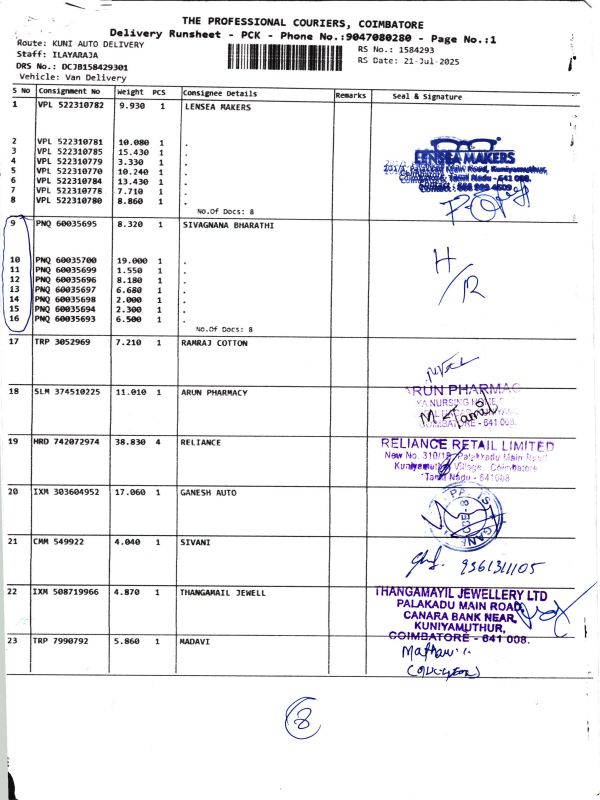 THE PROFESSIONAL COURIERS, COIMBATORE
Delivery Runsheet - PCK - Phone No.:9047080280 - Page No.:1
Route: KUNI AUTO DELIVERY
Staff: ILAYARAJA
DRS No.: DCJB158429301
Vehicle: Van Delivery
RS No.: 1584293
RS Date: 21-Jul-2025
S No Consignment No Weight PCS Consignee Details Remarks Seal & Signature
1 VPL 522310782 9.930 1 LENSEA MAKERS
2 VPL 522310781 10.080 1 .
3 VPL 522310785 15.430 1 .
4 VPL 522310779 3.330 1 .
5 VPL 522310770 10.240 1 .
6 VPL 522310784 13.430 1 .
7 VPL 522310778 7.710 1 .
8 VPL 522310780 8.860 1 .
No.Of Docs: 8
LENSEA MAKERS
Palakkad Main Road, Kuniyamuthur,
Coimbatore, Tamil Nadu - 641 008.
9 PNQ 60035695 8.320 1 SIVAGNANA BHARATHI
10 PNQ 60035700 19.000 1 .
11 PNQ 60035699 1.550 1 .
12 PNQ 60035696 8.180 1 .
13 PNQ 60035697 6.680 1 .
14 PNQ 60035698 2.000 1 .
15 PNQ 60035694 2.300 1 .
16 PNQ 60035693 6.500 1 .
No.Of Docs: 8
H/R
17 TRP 3052969 7.210 1 RAMRAJ COTTON
18 SLM 374510225 11.010 1 ARUN PHARMACY
ARUN PHARMAC
COIMBATORE - 641 008.
19 HRD 742072974 38.830 4 RELIANCE
RELIANCE RETAIL LIMITED
New No. 310/1 Palakkadu Main Road
Kuniyamuthur Village, Coimbatore
Tamil Nadu - 641008
20 IXM 303604952 17.060 1 GANESH AUTO
21 CMM 549922 4.040 1 SIVANI
9361311105
22 IXM 508719966 4.870 1 THANGAMAIL JEWELL
THANGAMAYIL JEWELLERY LTD
PALAKADU MAIN ROAD,
CANARA BANK NEAR,
KUNIYAMUTHUR,
COIMBATORE - 641 008.
23 TRP 7990792 5.860 1 MADAVI
8